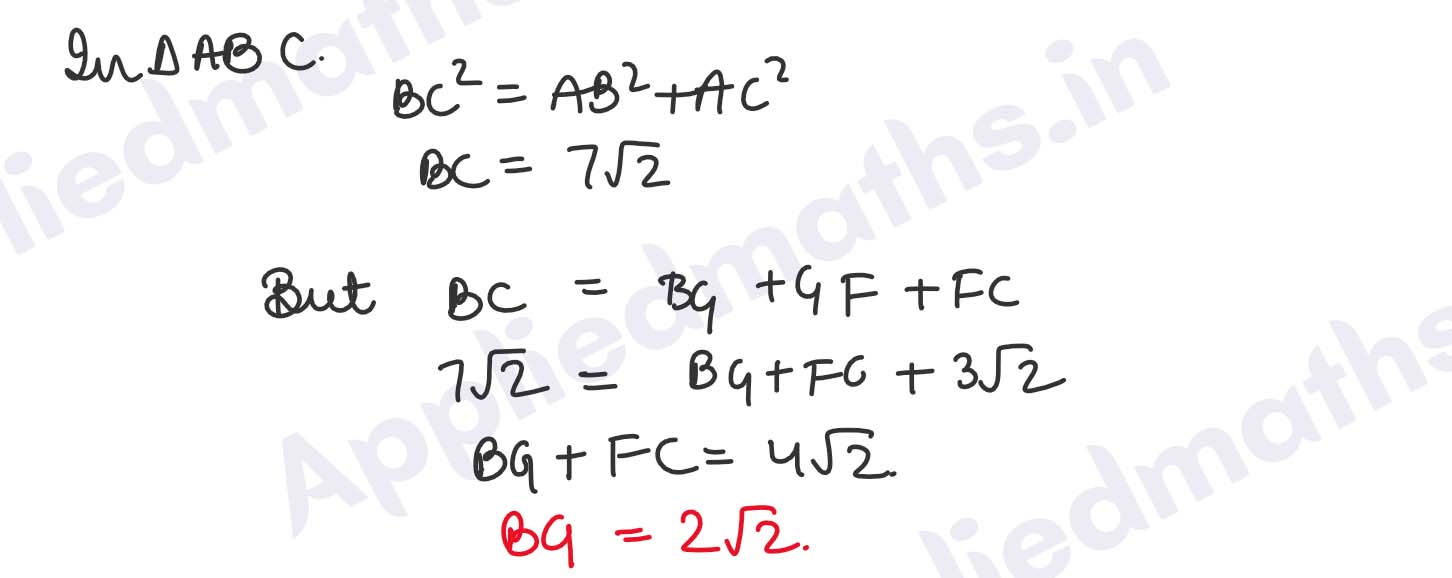 In ΔABC.
BC² = AB² + AC²
BC = 7√2
But BC = BG + GF + FC
7√2 = BG + FC + 3√2
BG + FC = 4√2.
BG = 2√2.
liedmaths
Appliedmaths.in
liedmaths